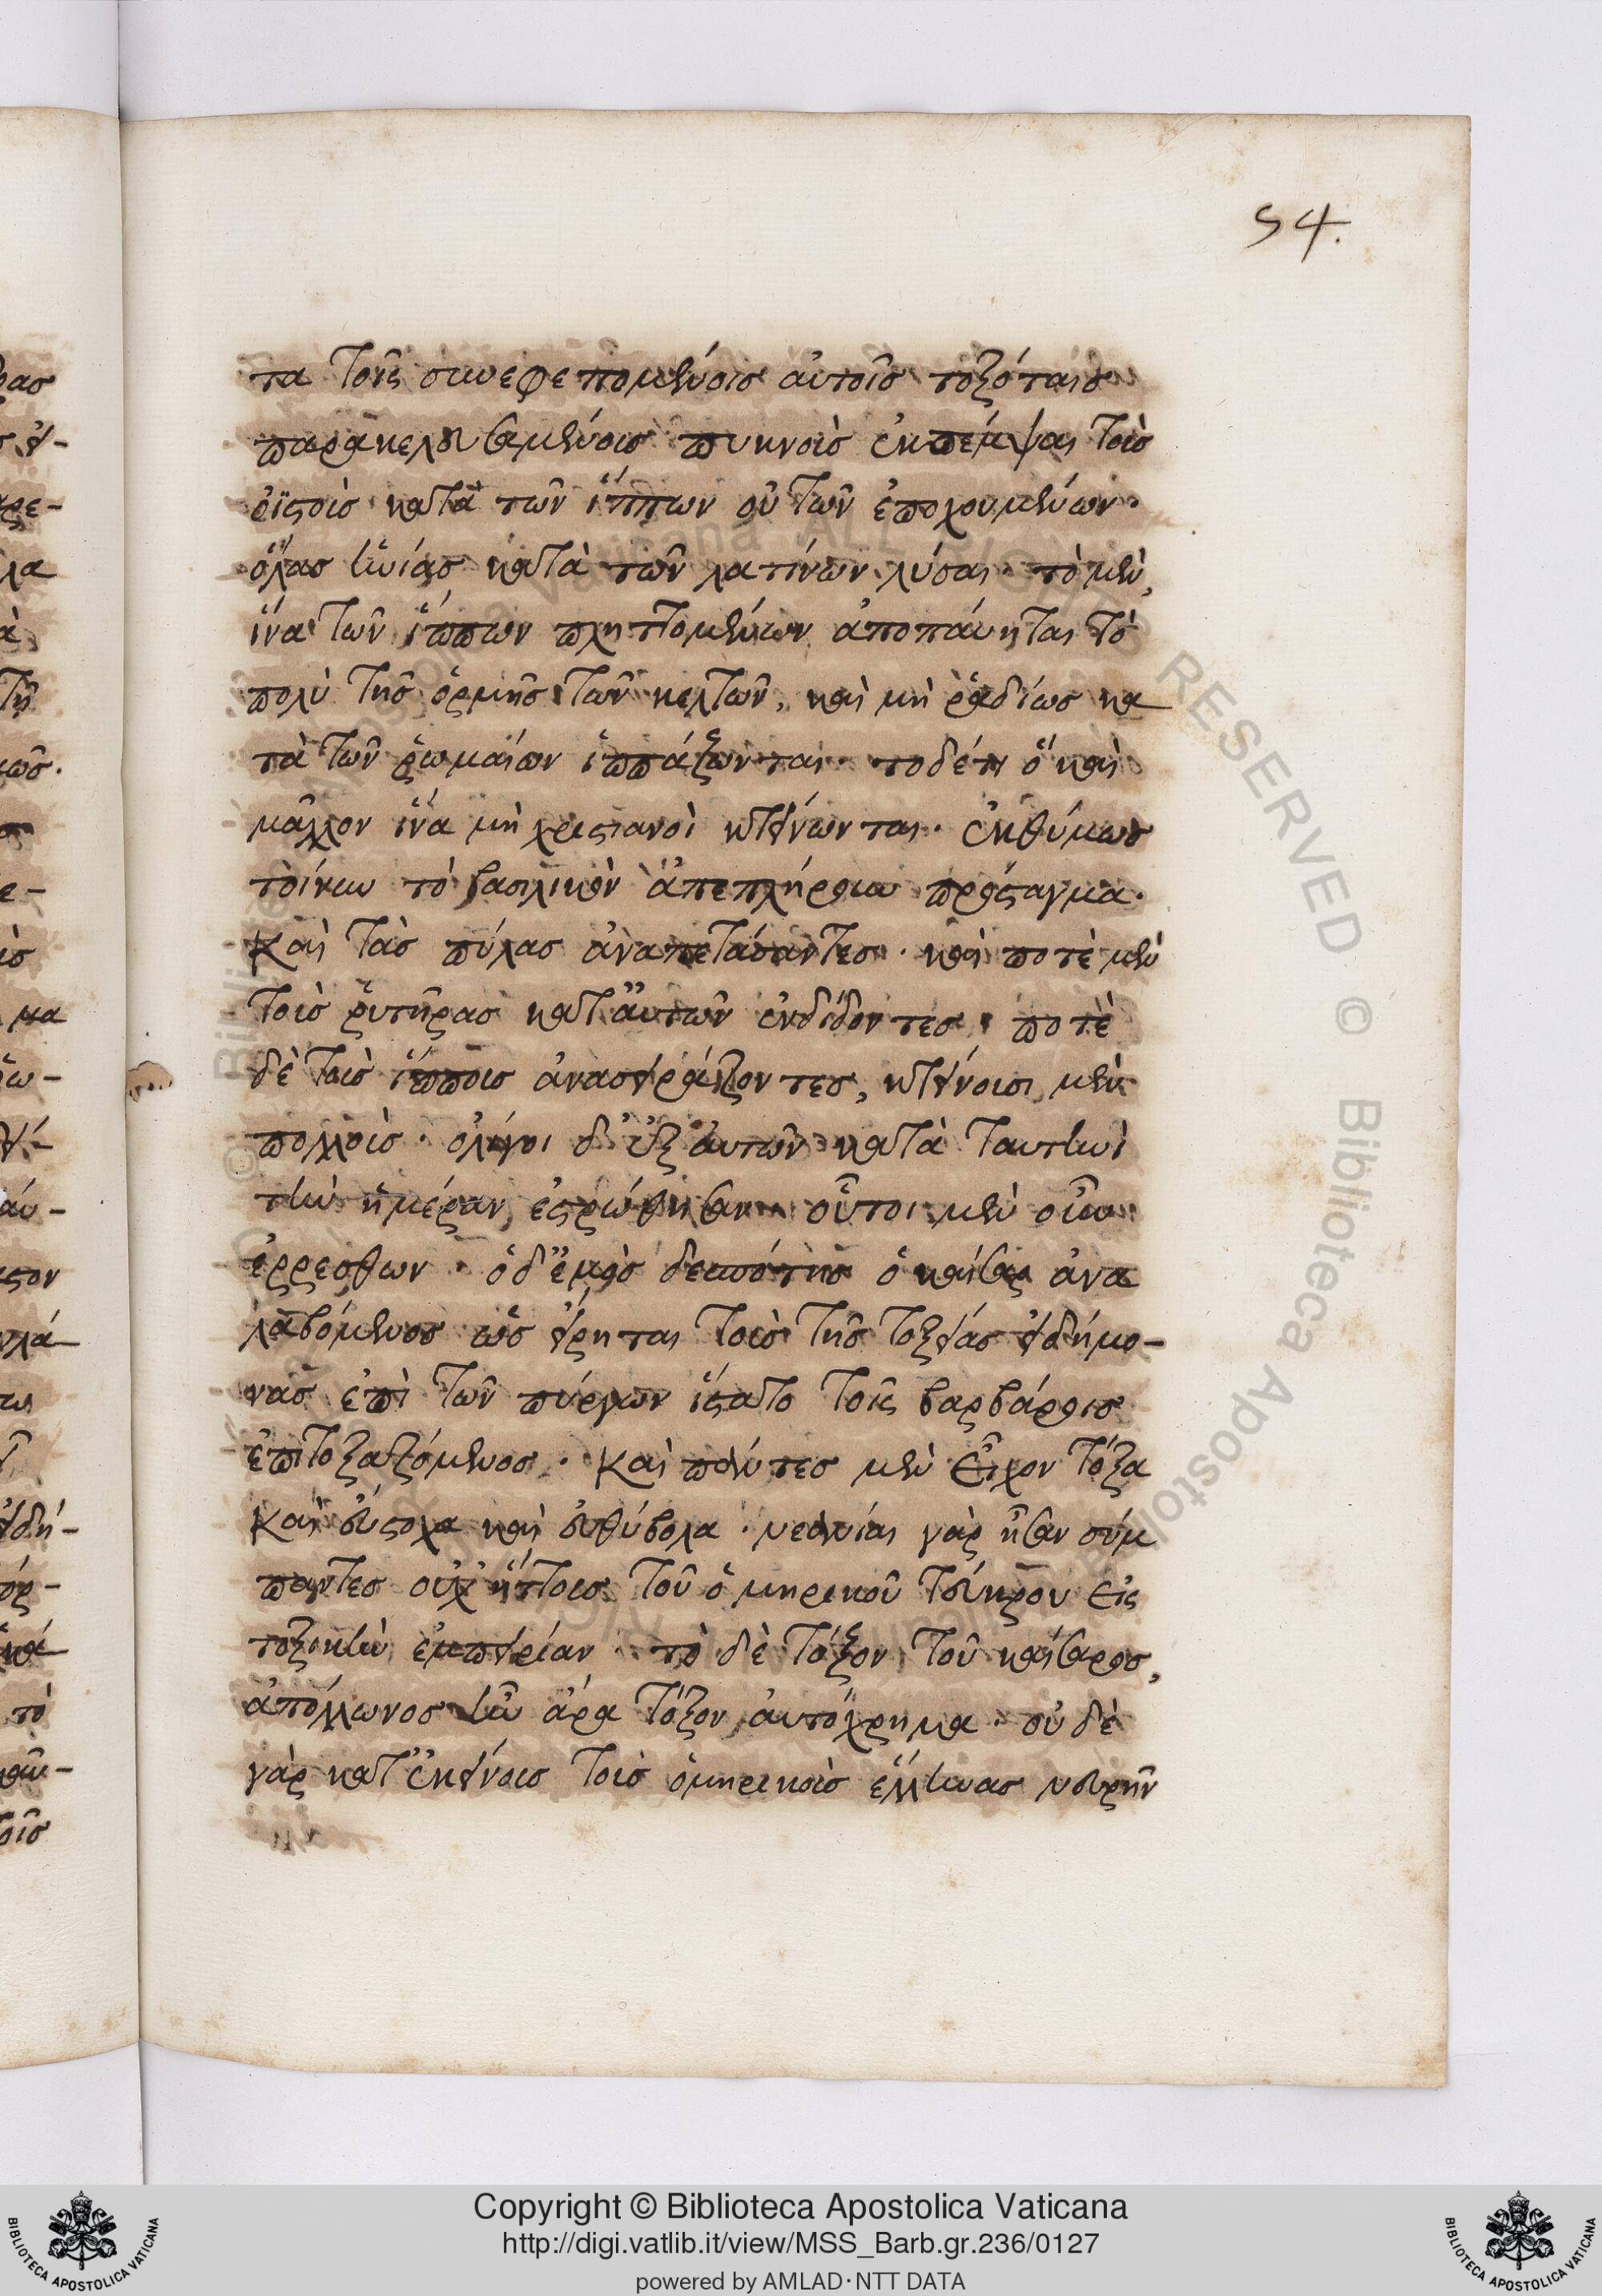 54.
τα τοῖς συνεφεπομένοις αὐτοῖς τοξόταις
παρακελευσαμένοις πυκνοὺς ἐκπέμψαι τοὺς
ὀϊστοὺς κατὰ τῶν ἵππων οὐ τῶν ἐποχουμένων·
ὅλας ἡνίας κατὰ τῶν λατίνων λύσαι· τὸ μὲν,
ἵνα τῶν ἵππων πληττομένων ἀποπαύηται τὸ
πολὺ τῆς ὁρμῆς τῶν κελτῶν, καὶ μὴ ῥαδίως κα
τὰ τῶν ῥωμαίων ἱππάζωνται· τὸ δέ τι ὃ καὶ
μᾶλλον ἵνα μὴ χριστιανοὶ κτείνωνται. ἐκθύμως
τοίνυν τὸ βασιλικὸν ἀπεπλήρουν πρόσταγμα·
Καὶ τὰς πύλας ἀναπετάσαντες· καὶ ποτὲ μὲν
τοὺς ῥυτῆρας κατ' αὐτῶν ἐνδίδοντες, ποτὲ
δὲ τοὺς ἵππους ἀνασειράζοντες, κτείνουσι μὲν
πολλοὺς· ὀλίγοι δ' ἐξ αὐτῶν κατὰ ταύτην
τὴν ἡμέραν ἐστρώθησαν· οὗτοι μὲν οὖν
ἐρρέσθων· ὁ δ' ἐμὸς δεσπότης ὁ καῖσαρ ἀνα
λαβόμενος ὡς εἴρηται τοὺς τῆς τοξείας εἰδήμο-
νας ἐπὶ τῶν πύργων ἵστατο τοῖς βαρβάροις
ἐπιτοξαζόμενος. Καὶ πάντες μὲν εἶχον τόξα
καὶ εὔστοχα καὶ εὐθύβολα· νεανίαι γὰρ ἦσαν σύμ
παντες οὐχ ἥττους τοῦ ὁμηρικοῦ τεύκρου εἰς
τοξικὴν ἐμπειρίαν· τὸ δὲ τόξον τοῦ καίσαρος,
ἀπόλλωνος ἦν ἄρα τόξον αὐτόχρημα· οὐδὲ
γὰρ κατ' ἐκείνους τοὺς ὁμηρικοὺς ἕλληνας νευρὴν